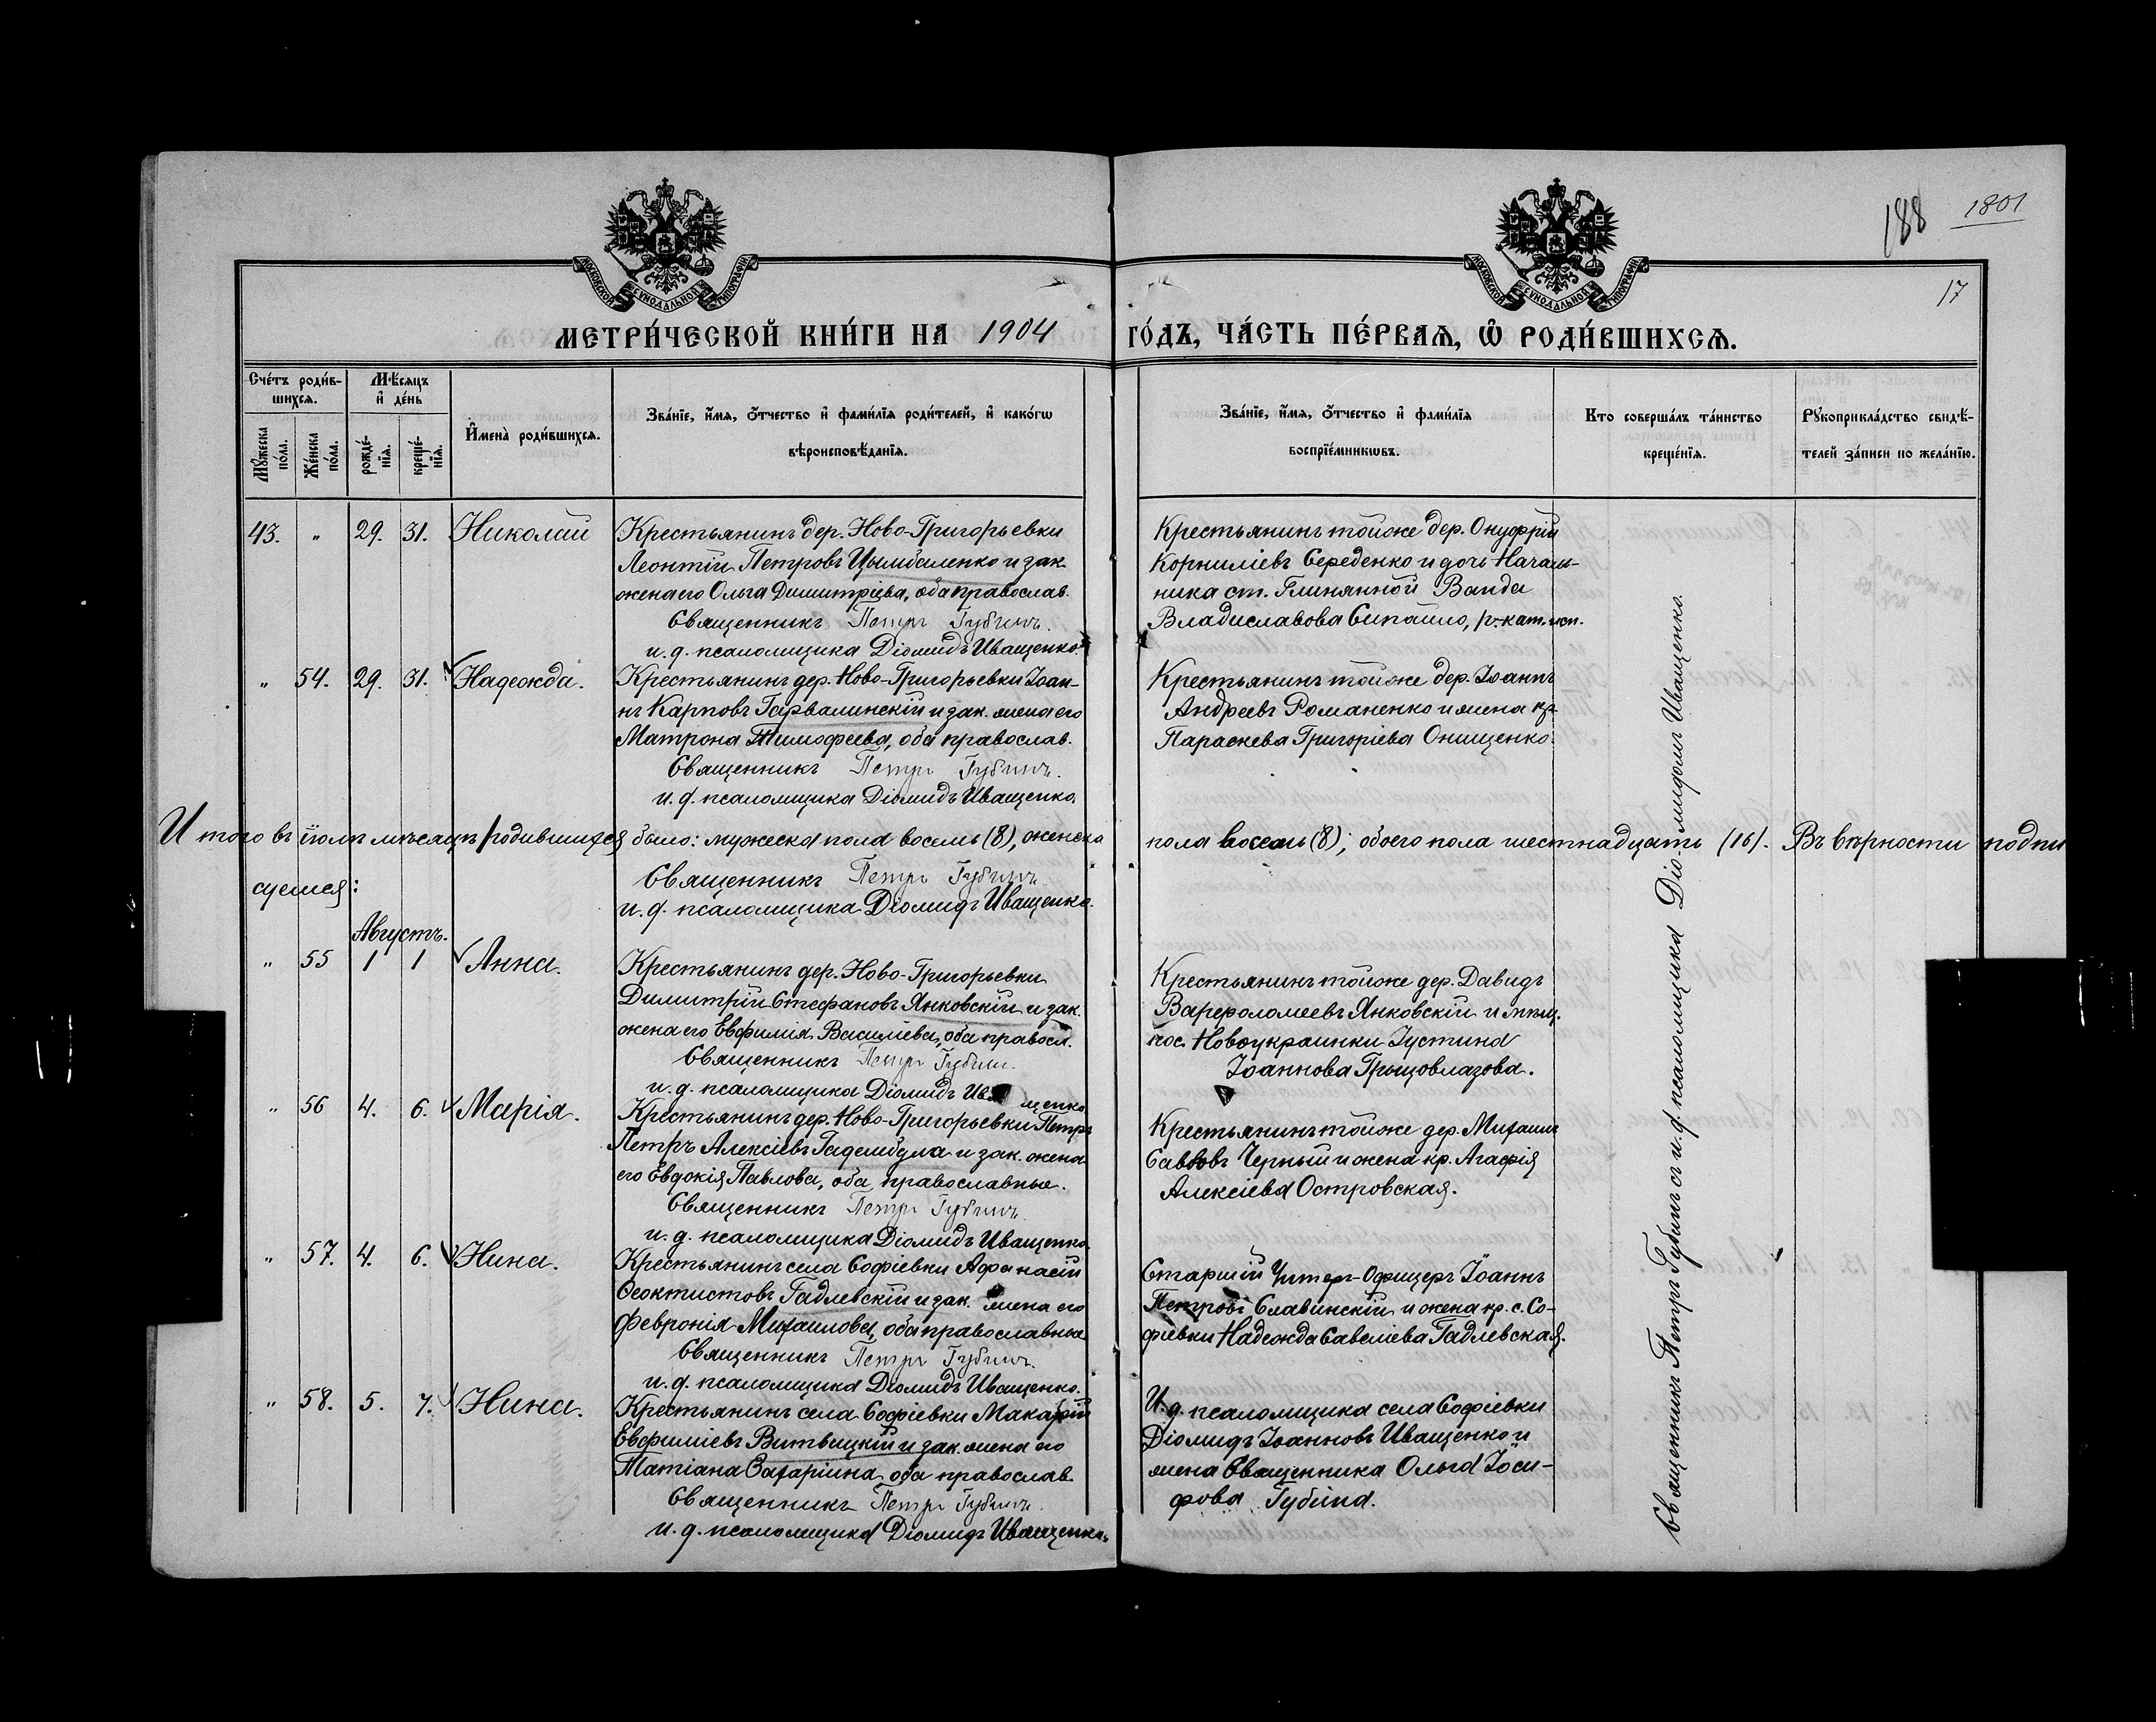 188 1801
17
МОСКОВСКОЙ СѴНОДАЛЬНОЙ ТИПОГРАФІИ
МОСКОВСКОЙ СѴНОДАЛЬНОЙ ТИПОГРАФІИ
МЕТРИ́ЧЕСКОЙ КНИ́ГИ НА 1904 ГО́ДЪ, ЧА́СТЬ ПЕ́РВАѦ, Ѿ РОДИ́ВШИХСѦ.
Сче́тъ роди́в-
шихсѧ.
Мꙋ́жеска по́ла.
Же́нска по́ла.
Мѣ́сѧцъ
и҆ де́нь
рожде́-
нїѧ.
креще́-
нїѧ.
И҆мена̀ роди́вшихсѧ.
Зва́нїе, и҆́мѧ, ѻ҆́тчество и҆ фами́лїѧ роди́телей, и҆ како́гѡ
вѣроисповѣ́данїѧ.
Зва́нїе, и҆́мѧ, ѻ҆́тчество и҆ фами́лїѧ
воспрїе́мникѡвъ.
Кто соверша́лъ та́инство
креще́нїѧ.
Рꙋкоприкла́дство свидѣ́-
телей за́писи по жела́нїю.
43. " 29. 31. Николай
Крестьянинъ дер. Ново-Григорьевки
Леонтій Петровъ Цымбаленко и зак.
жена его Ольга Димитріева, оба православ.
Священникъ Петръ Губинъ.
и. д. псаломщика Діомидъ Иващенко.
Крестьянинъ тойже дер. Онуфрій
Корниліевъ Середенко и дочь Началь-
ника ст. Глинянной Ванда
Владиславова Сипайло, р.-кат. исп.
" 54. 29. 31. Надежда.
Крестьянинъ дер. Ново-Григорьевки Іоан-
нъ Карповъ Гарвалинскій и зак. жена его
Матрона Тимофеева, оба православ.
Священникъ Петръ Губинъ.
и. д. псаломщика Діомидъ Иващенко.
Крестьянинъ тойже дер. Іоаннъ
Андреевъ Романенко и жена кр.
Параскева Григоріева Онищенко.
И того въ іюлѣ мѣсяцѣ родившихся было: мужеска пола восемь (8), женска пола восемь (8); обоего пола шестнадцать (16). Въ вѣрности подпи
суемся:
Священникъ Петръ Губинъ
и. д. псаломщика Діомидъ Иващенко.
Августъ.
" 55 1 1 Анна.
Крестьянинъ дер. Ново-Григорьевки
Димитрій Стефановъ Янковскій и зак.
жена его Евфимія Василіева, оба правосл.
Священникъ Петръ Губинъ.
и. д. псаломщика Діомидъ Иващенко.
Крестьянинъ тойже дер. Давидъ
Варфоломеевъ Янковскій и мѣщ.
пос. Новоукраинки Іустина
Іоаннова
" 56 4. 6. Марія.
Крестьянинъ дер. Ново-Григорьевки Петръ
Петръ Алексіевъ и зак. жена
его Евдокія Павлова, оба православные.
Священникъ Петръ Губинъ.
и. д. псаломщика Діомидъ Иващенко.
Крестьянинъ тойже дер. Михаилъ
Саввовъ Черный и жена кр. Агафія
Алексіева Островская.
" 57. 4. 6. Нина.
Крестьянинъ села Софіевки Афанасій
Феоктистовъ Гадлевскій и зак. жена его
Февронія Михаилова, оба православные
Священникъ Петръ Губинъ.
и. д. псаломщика Діомидъ Иващенко.
Старшій Унтеръ-Офицеръ Іоаннъ
Петровъ Славинскій и жена кр. с. Со-
фіевки Надежда Савеліева Гадлевская.
" 58. 5. 7. Нина.
Крестьянинъ села Софіевки Макарій
Евфиміевъ Витвицкій и зак. жена его
Татіана Захаріина, оба православ.
Священникъ Петръ Губинъ.
и. д. псаломщика Діомидъ Иващенко.
И. д. псаломщика села Софіевки
Діомидъ Іоанновъ Иващенко и
жена Священника Ольга Іоси-
фова Губина.
Священникъ Петръ Губинъ съ и. д. псаломщика Діомидомъ Иващенко.